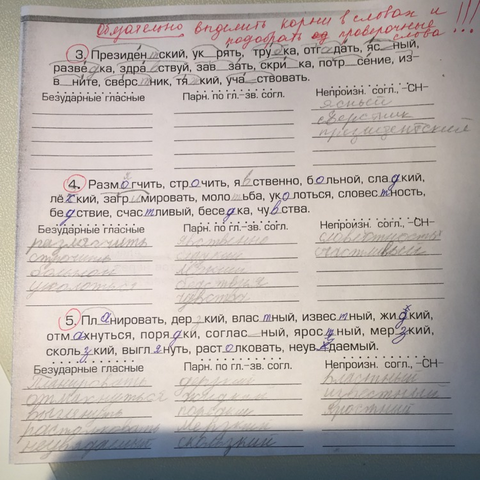 Обязательно выделить корни в словах и
подобрать проверочные
слова !!!
3. Президен_ский, ук_рять, тру_ка, отгадать, яс_ный,
разве_ка, здра_ствуй, зав_зать, скри_ка, потр_сение, из-
в_ните, сверс_ник, тя_кий, уча_ствовать.
Безударные гласные Парн. по гл.-зв. согл. Непроизн. согл., -СН-
ясный
сверстник
президентский
4. Размогчить, строчить, явственно, больной, сладкий,
лёгкий, загримировать, молотьба, уколоться, словестность,
бедствие, счастливый, беседка, чувства.
Безударные гласные Парн. по гл.-зв. согл. Непроизн. согл., -СН-
размягчить явственно словестность
строчить сладкий счастливый
больной лёгкий
уколоться бедствие
чувства
5. Планировать, дер_кий, властный, известный, жидкий,
отмахнуться, порядки, соглас_ный, яростный, мерзкий,
скользкий, выглянуть, растолковать, неувядаемый.
Безударные гласные Парн. по гл.-зв. согл. Непроизн. согл., -СН-
планировать дерзкий властный
отмахнуться жидкий известный
выглянуть порядки яростный
растолковать мерзкий
скользкий